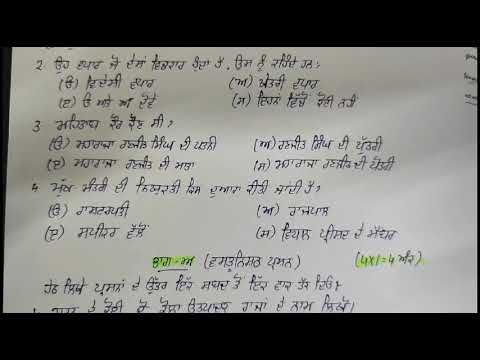 2 ਉਹ ਵਪਾਰ ਜੋ ਦੇਸਾਂ ਵਿਚਕਾਰ ਹੁੰਦਾ ਹੈ, ਉਸ ਨੂੰ ਕਹਿੰਦੇ ਹਨ:
(ੳ) ਵਿਦੇਸ਼ੀ ਵਪਾਰ (ਅ) ਘਰੇਲੂ ਵਪਾਰ
(ੲ) ੳ ਅਤੇ ਅ ਦੋਵੇਂ (ਸ) ਇਹਨਾਂ ਵਿੱਚੋਂ ਕੋਈ ਨਹੀਂ
3 ਮਹਿਤਾਬ ਕੌਰ ਕੌਣ ਸੀ?
(ੳ) ਮਹਾਰਾਜਾ ਰਣਜੀਤ ਸਿੰਘ ਦੀ ਪਤਨੀ (ਅ) ਰਣਜੀਤ ਸਿੰਘ ਦੀ ਪੁੱਤਰੀ
(ੲ) ਮਹਾਰਾਜਾ ਰਣਜੀਤ ਦੀ ਮਾਤਾ (ਸ) ਮਹਾਰਾਜਾ ਰਣਜੀਤ ਦੀ ਪੋਤਰੀ
4 ਮੁੱਖ ਮੰਤਰੀ ਦੀ ਨਿਯੁਕਤੀ ਕਿਸ ਦੁਆਰਾ ਕੀਤੀ ਜਾਂਦੀ ਹੈ?
(ੳ) ਰਾਸ਼ਟਰਪਤੀ (ਅ) ਰਾਜਪਾਲ
(ੲ) ਸਪੀਕਰ ਵੱਲੋਂ (ਸ) ਵਿਧਾਨ ਪ੍ਰੀਸ਼ਦ ਦੇ ਮੈਂਬਰ
ਭਾਗ-ਅ (ਵਸਤੂਨਿਸ਼ਠ ਪ੍ਰਸ਼ਨ) (4×1=4 ਅੰਕ)
ਹੇਠ ਲਿਖੇ ਪ੍ਰਸ਼ਨਾਂ ਦੇ ਉੱਤਰ ਇੱਕ ਸ਼ਬਦ ਤੋਂ ਇੱਕ ਵਾਕ ਤੱਕ ਦਿਓ:
ਭਾਰਤ ਦੇ ਕੋਈ ਦੋ ਕੋਲਾ ਉਤਪਾਦਕ ਰਾਜਾਂ ਦੇ ਨਾਮ ਲਿਖੋ।